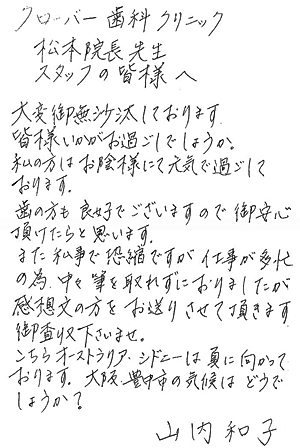 クローバー歯科クリニック
松本院長先生
スタッフの皆様へ
大変御無沙汰しております.
皆様いかがお過ごしでしょうか.
私の方はお陰様にて元気で過ごして
おります.
歯の方も良好でございますので御安心
頂けたらと思います.
また私事で恐縮ですが仕事が多忙
の為、中々筆を取れずにおりましたが
感想文の方をお送りさせて頂きます
御査収下さいませ.
こちらオーストラリア・シドニーは夏に向かって
おります. 大阪、豊中市の気候はどうで
しょうか?
山内和子